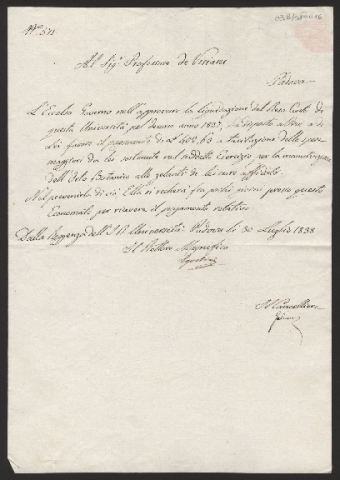 N.º 571
Al Sig.r Professore de Visiani
Padova
L'Eccelso Governo nell'approvare la liquidazione del Reso Conto di
questa Università pel decorso anno 1837, ha disposto a di
Lei favore il pagamento di a tacitazione delle spese
maggiori da lei sostenute nel suddetto Esercizio per la manutenzione
dell'Orto Botanico alle zelanti di lei cure affidato.
Nel prevenirla di ciò, Ella si recherà fra pochi giorni presso questo
Economato per ricevere il pagamento relativo.
Dalla Reggenza dell'I. R. Università. Padova li 30 Luglio 1838
Il Rettore Magnifico
Il Cancelliere